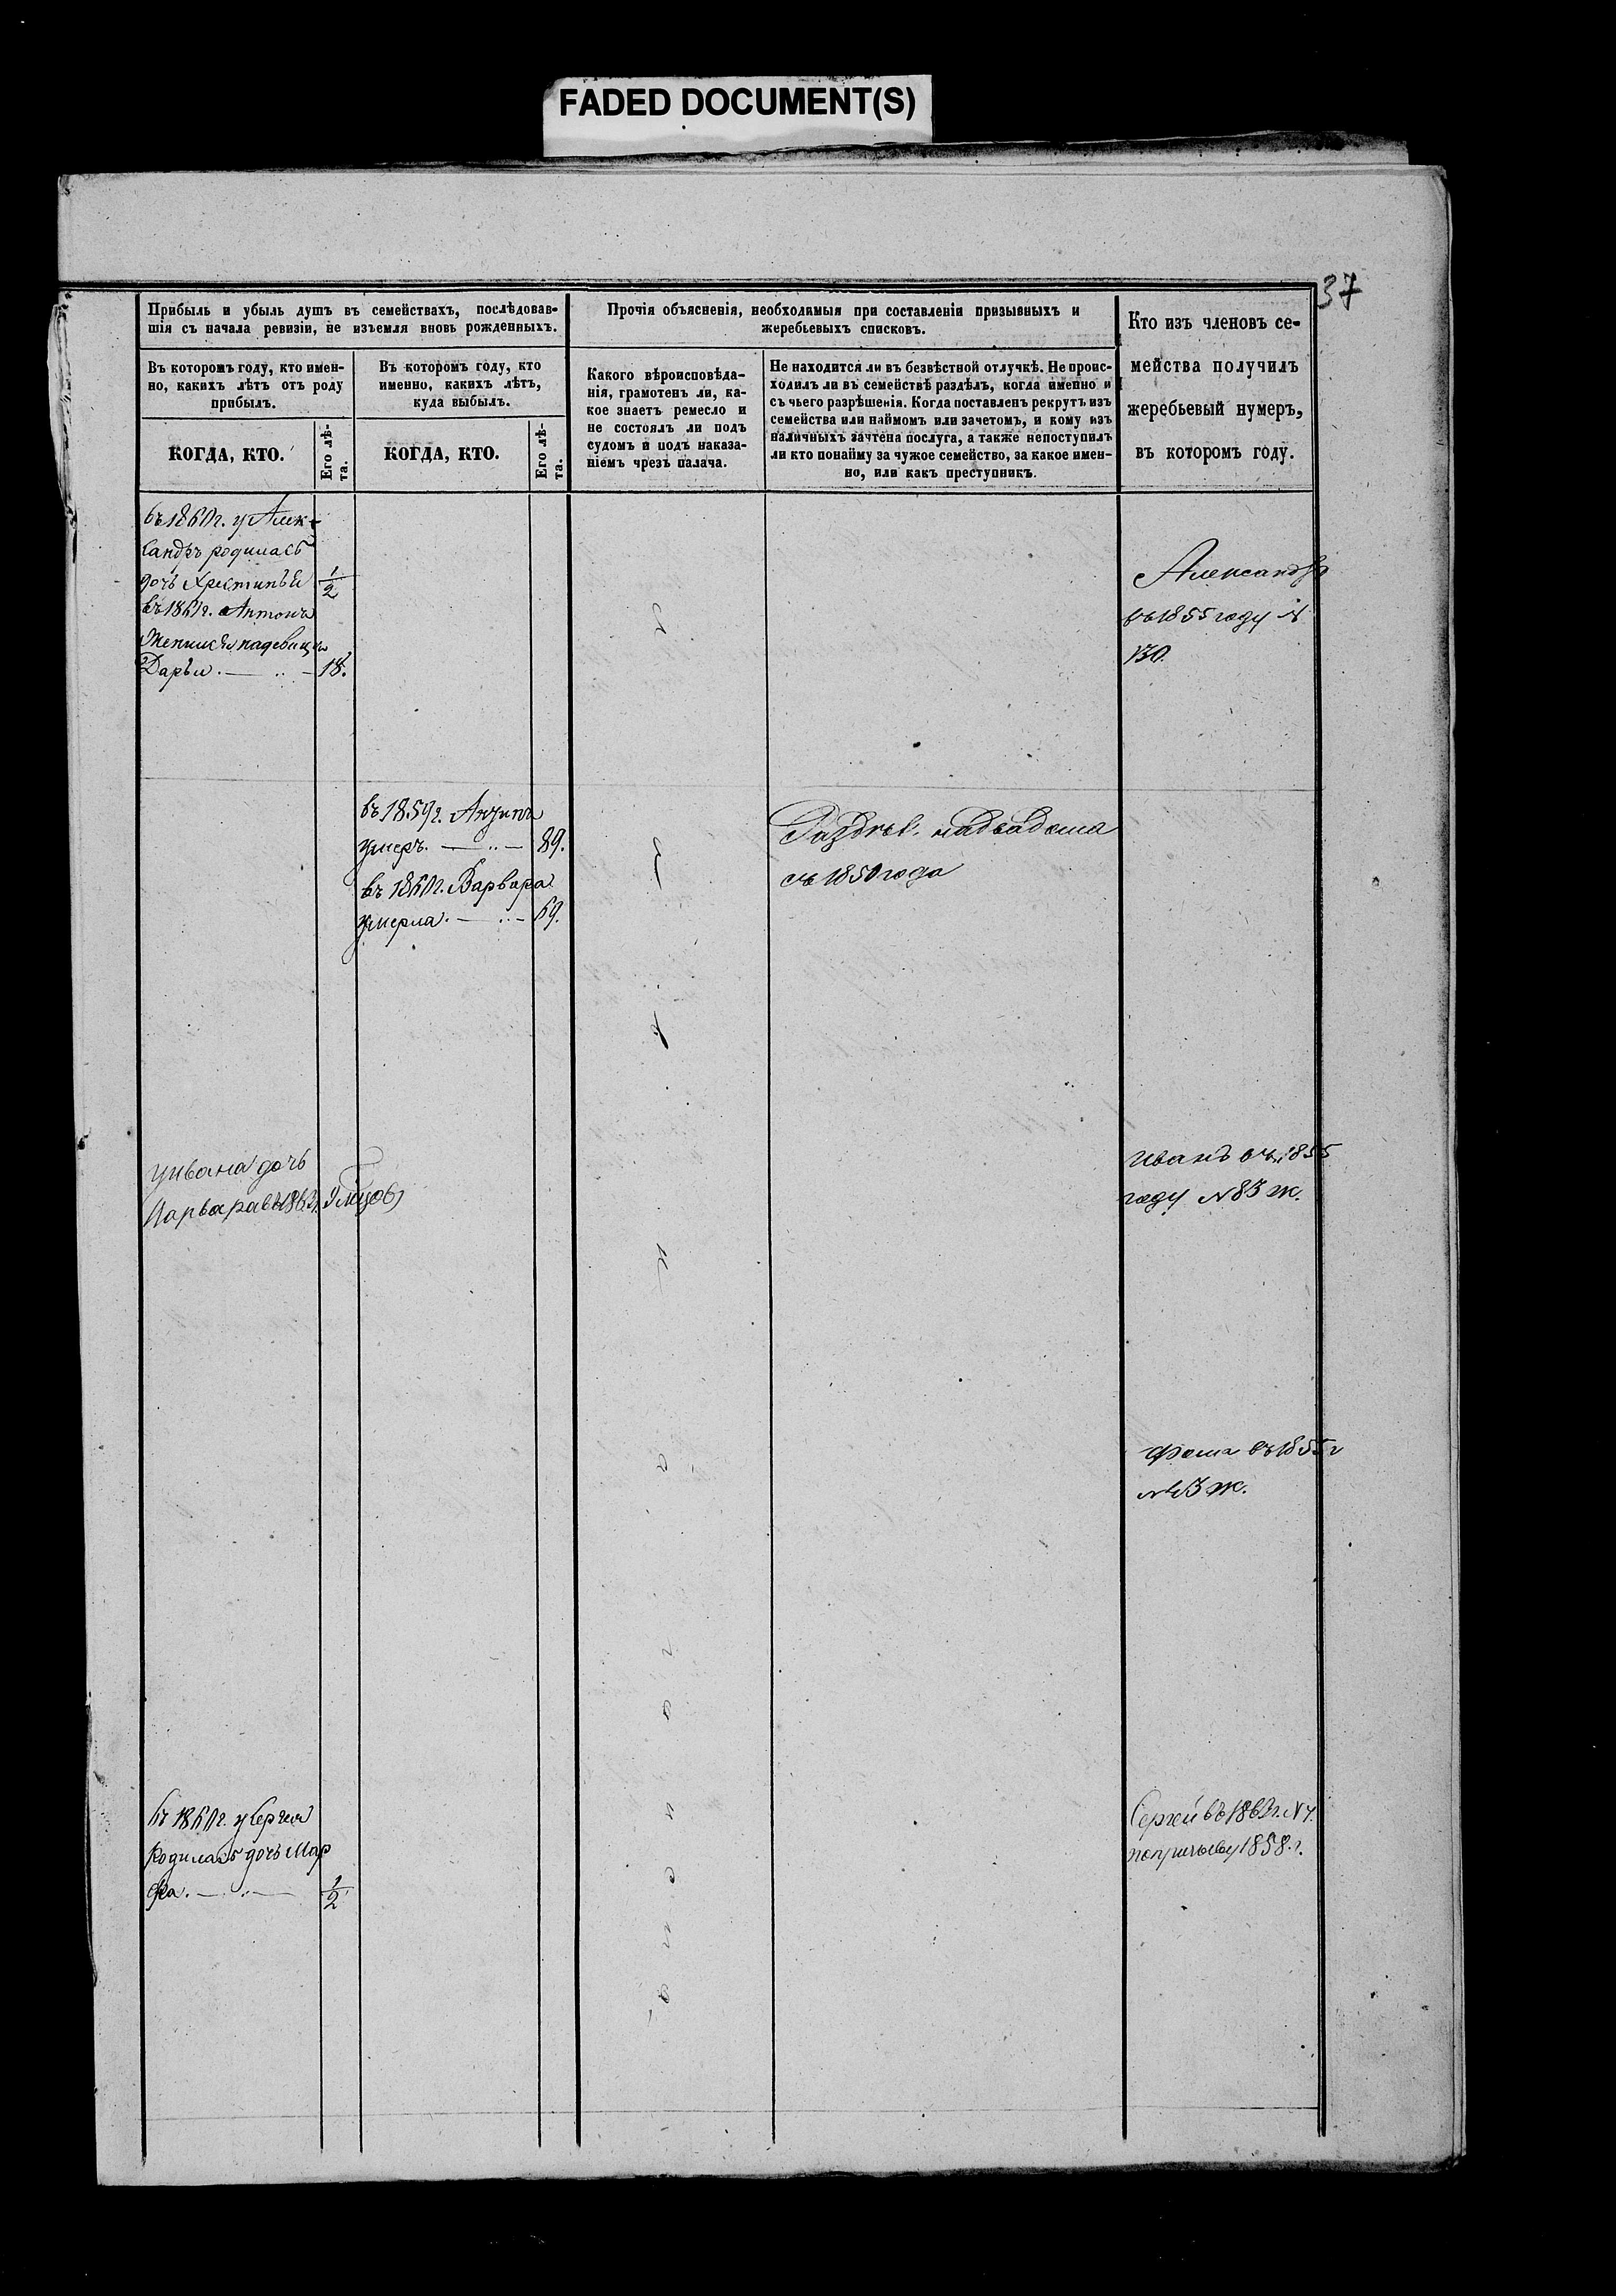 FADED DOCUMENT(S)
37
Прибыль и убыль душъ въ семействахъ, послѣдовав-
шія съ начала ревизіи, не изъемля вновь рожденныхъ.
Въ которомъ году, кто имен-
но, какихъ лѣтъ отъ роду
прибылъ.
Въ которомъ году, кто
именно, какихъ лѣтъ,
куда выбылъ.
КОГДА, КТО.
Его лѣ-
та.
КОГДА, КТО.
Его лѣ-
та.
Прочія объясненія, необходимыя при составленіи призывныхъ и
жеребьевыхъ списковъ.
Какого вѣроисповѣда-
нія, грамотенъ ли, ка-
кое знаетъ ремесло и
не состоялъ ли подъ
судомъ и подъ наказа-
ніемъ чрезъ палача.
Не находится ли въ безвѣстной отлучкѣ. Не проис-
ходилъ ли въ семействѣ раздѣлъ, когда именно и
съ чьего разрѣшенія. Когда поставленъ рекрутъ изъ
семейства или наймомъ или зачетомъ, и кому изъ
наличныхъ зачтена послуга, а также непоступилъ
ли кто понайму за чужое семейство, за какое имен-
но, или какъ преступникъ.
Кто изъ членовъ се-
мейства получилъ
жеребьевый нумеръ,
въ которомъ году.
въ 1860г. у Алек-
сандръ родилась
дочь 1/2
въ 1861г. Антонъ
Дарьи. — 18.
Александръ
въ 1855 году №
130.
въ 1859г.
умеръ. — 89.
въ 1860г. Варвара
умерла. — 69.
съ 1850 года
у Ивана дочь
Варвара
Иванъ въ 1855
году № 83 ж.
Фома въ 1855 г
ж.
въ 1860г. у Сергея
родилась дочь Мар
фа. — 1/2
Сергей въ
1858. г.